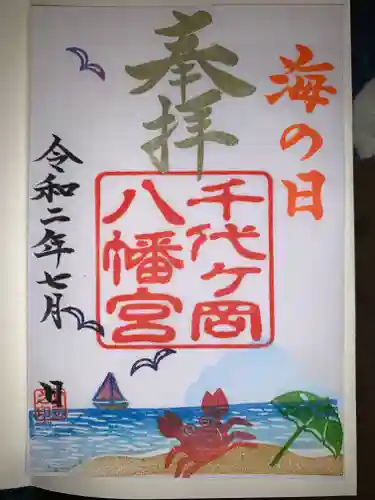 海の日
奉拝
千代ヶ岡
八幡宮
令和二年七月
日